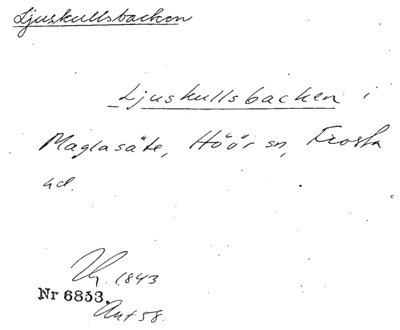 Ljuskullsbacken
Ljuskullsbacken i
Maglasäte, Höör sn, Frosta
hd.
1843
Nr 6853.
Ant 58.